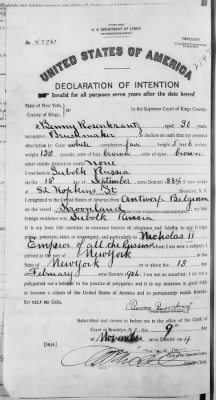 U. S. DEPARTMENT OF LABOR
TRIPLICATE
No. 43761
UNITED STATES OF AMERICA
DECLARATION OF INTENTION
Invalid for all purposes seven years after the date hereof
State of New York,
County of Kings,
In the Supreme Court of Kings County.
I, Benny Rosenkrantz, aged 32 years,
occupation Brushmaker, do declare on oath that my personal
description is: Color white, complexion fair, height 5 feet 6 inches,
weight 130 pounds, color of hair brown, color of eyes brown
other visible distinctive marks none
I was born in Subolk Russia
on the 15 day of September, anno Domini 1 884; I now reside
at 52 Hopkins St, Brooklyn, N. Y.
I emigrated to the United States of America from Antwerp Belgium
on the vessel Kroonland; my last
foreign residence was Subolk Russia
It is my bona fide intention to renounce forever all allegiance and fidelity to any foreign
prince, potentate, state, or sovereignty, and particularly to Nicholas II
Emperor of all the Russias, of whom I am now a subject; I
arrived at the port of New York, in the
State of New York, on or about the 13 day
of February, anno Domini 1906; I am not an anarchist; I am not a
polygamist nor a believer in the practice of polygamy; and it is my intention in good faith
to become a citizen of the United States of America and to permanently reside therein:
SO HELP ME GOD.
Subscribed and sworn to before me in the office of the Clerk of
Court at Brooklyn, N. Y., this 9 day
of November, anno Domini 19 14
[SEAL]